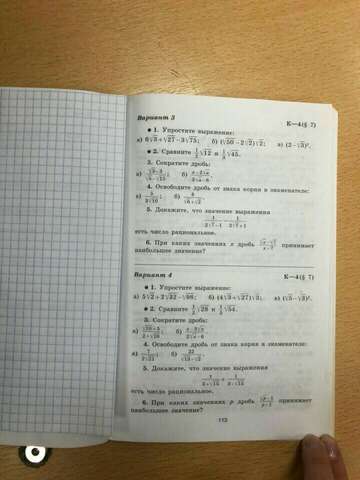 Вариант 3
К—4(§ 7)
● 1. Упростите выражение:
а) 6√3 + √27 − 3√75; б) (√50 − 2√2)√2; в) (2 − √3)².
● 2. Сравните √12 и √45.
3. Сократите дробь:
а) б)
4. Освободите дробь от знака корня в знаменателе:
а) б)
5. Докажите, что значение выражения
1/(2√7−1) − 1/(2√7+1)
есть число рациональное.
6. При каких значениях x дробь принимает
наибольшее значение?
Вариант 4
К—4(§ 7)
● 1. Упростите выражение:
а) 5√2 + 2√32 − √98; б) (4√3 + √27)√3; в) (√5 − √3)².
● 2. Сравните √28 и √54.
3. Сократите дробь:
а) б)
4. Освободите дробь от знака корня в знаменателе:
а) 7/(2√21); б) 22/(√13−√2).
5. Докажите, что значение выражения
есть число рациональное.
6. При каких значениях p дробь принимает
наибольшее значение?
113